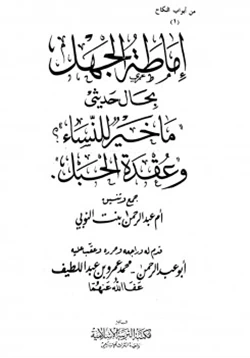 من أبواب النكاح
(١)
إماطة الجهل
بحال حديثي
ما خير للنساء؟
وعقدة الحبل.
جمع وترتيب
أم عبد الرحمن بنت النوبي
قدم له وراجعه وحرره وعقب عليه
أبو عبد الرحمن - محمد عمرو بن عبد اللطيف
عفا الله عنهما
مكتبة التوعية الإسلامية